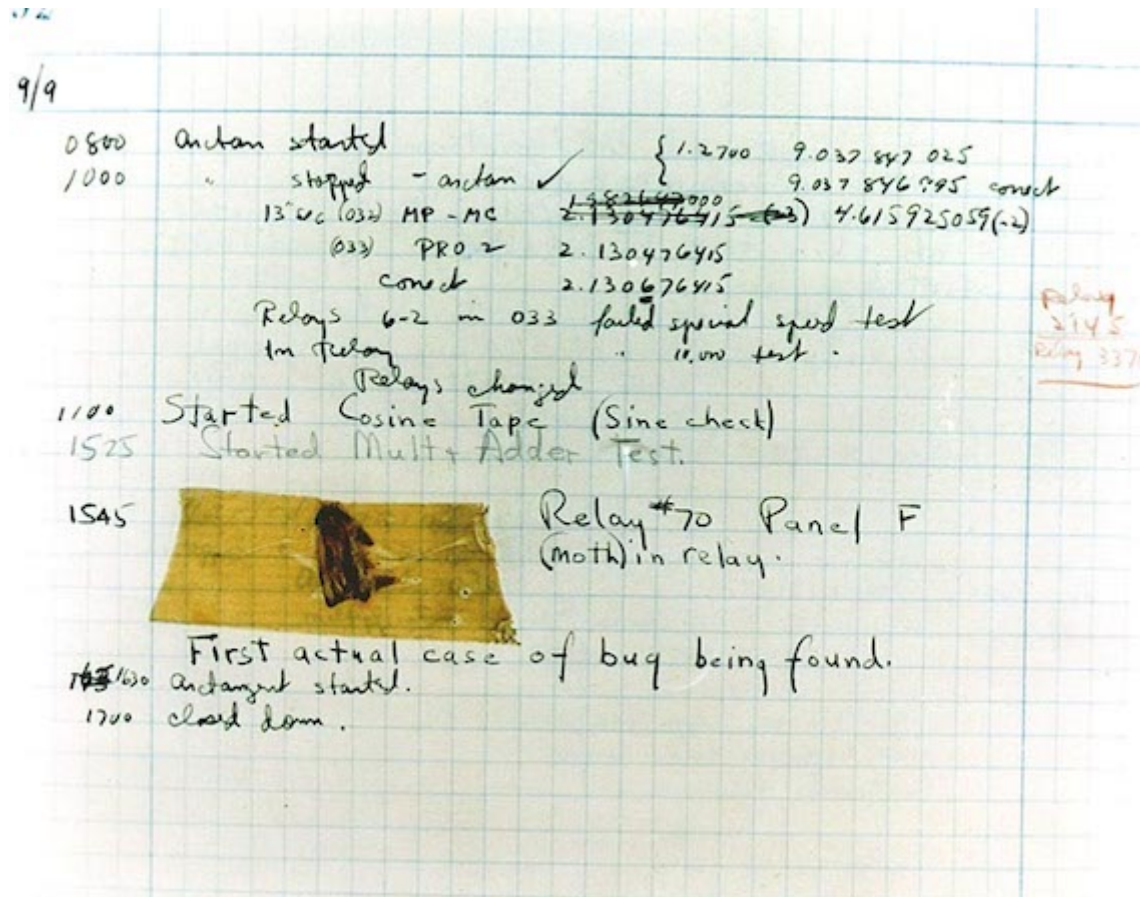 92
9/9
0800 arctan started { 1.2700 9.037 847 025
1000 " stopped - arctan ✓ 9.037 846 995 correct
13"uc (032) MP - MC 2.130476415 (-3) 4.615925059(-2)
(033) PRO 2 2.130476415
correct 2.130676415
Relays 6-2 in 033 failed special speed test
In relay " 10,000 test .
Relays changed
Relay
2145
Relay 337
1100 Started Cosine Tape (Sine check)
1525 Started Mult+Adder Test.
1545 Relay #70 Panel F
(moth) in relay.
First actual case of bug being found.
1630 arctangent started.
1700 closed down.